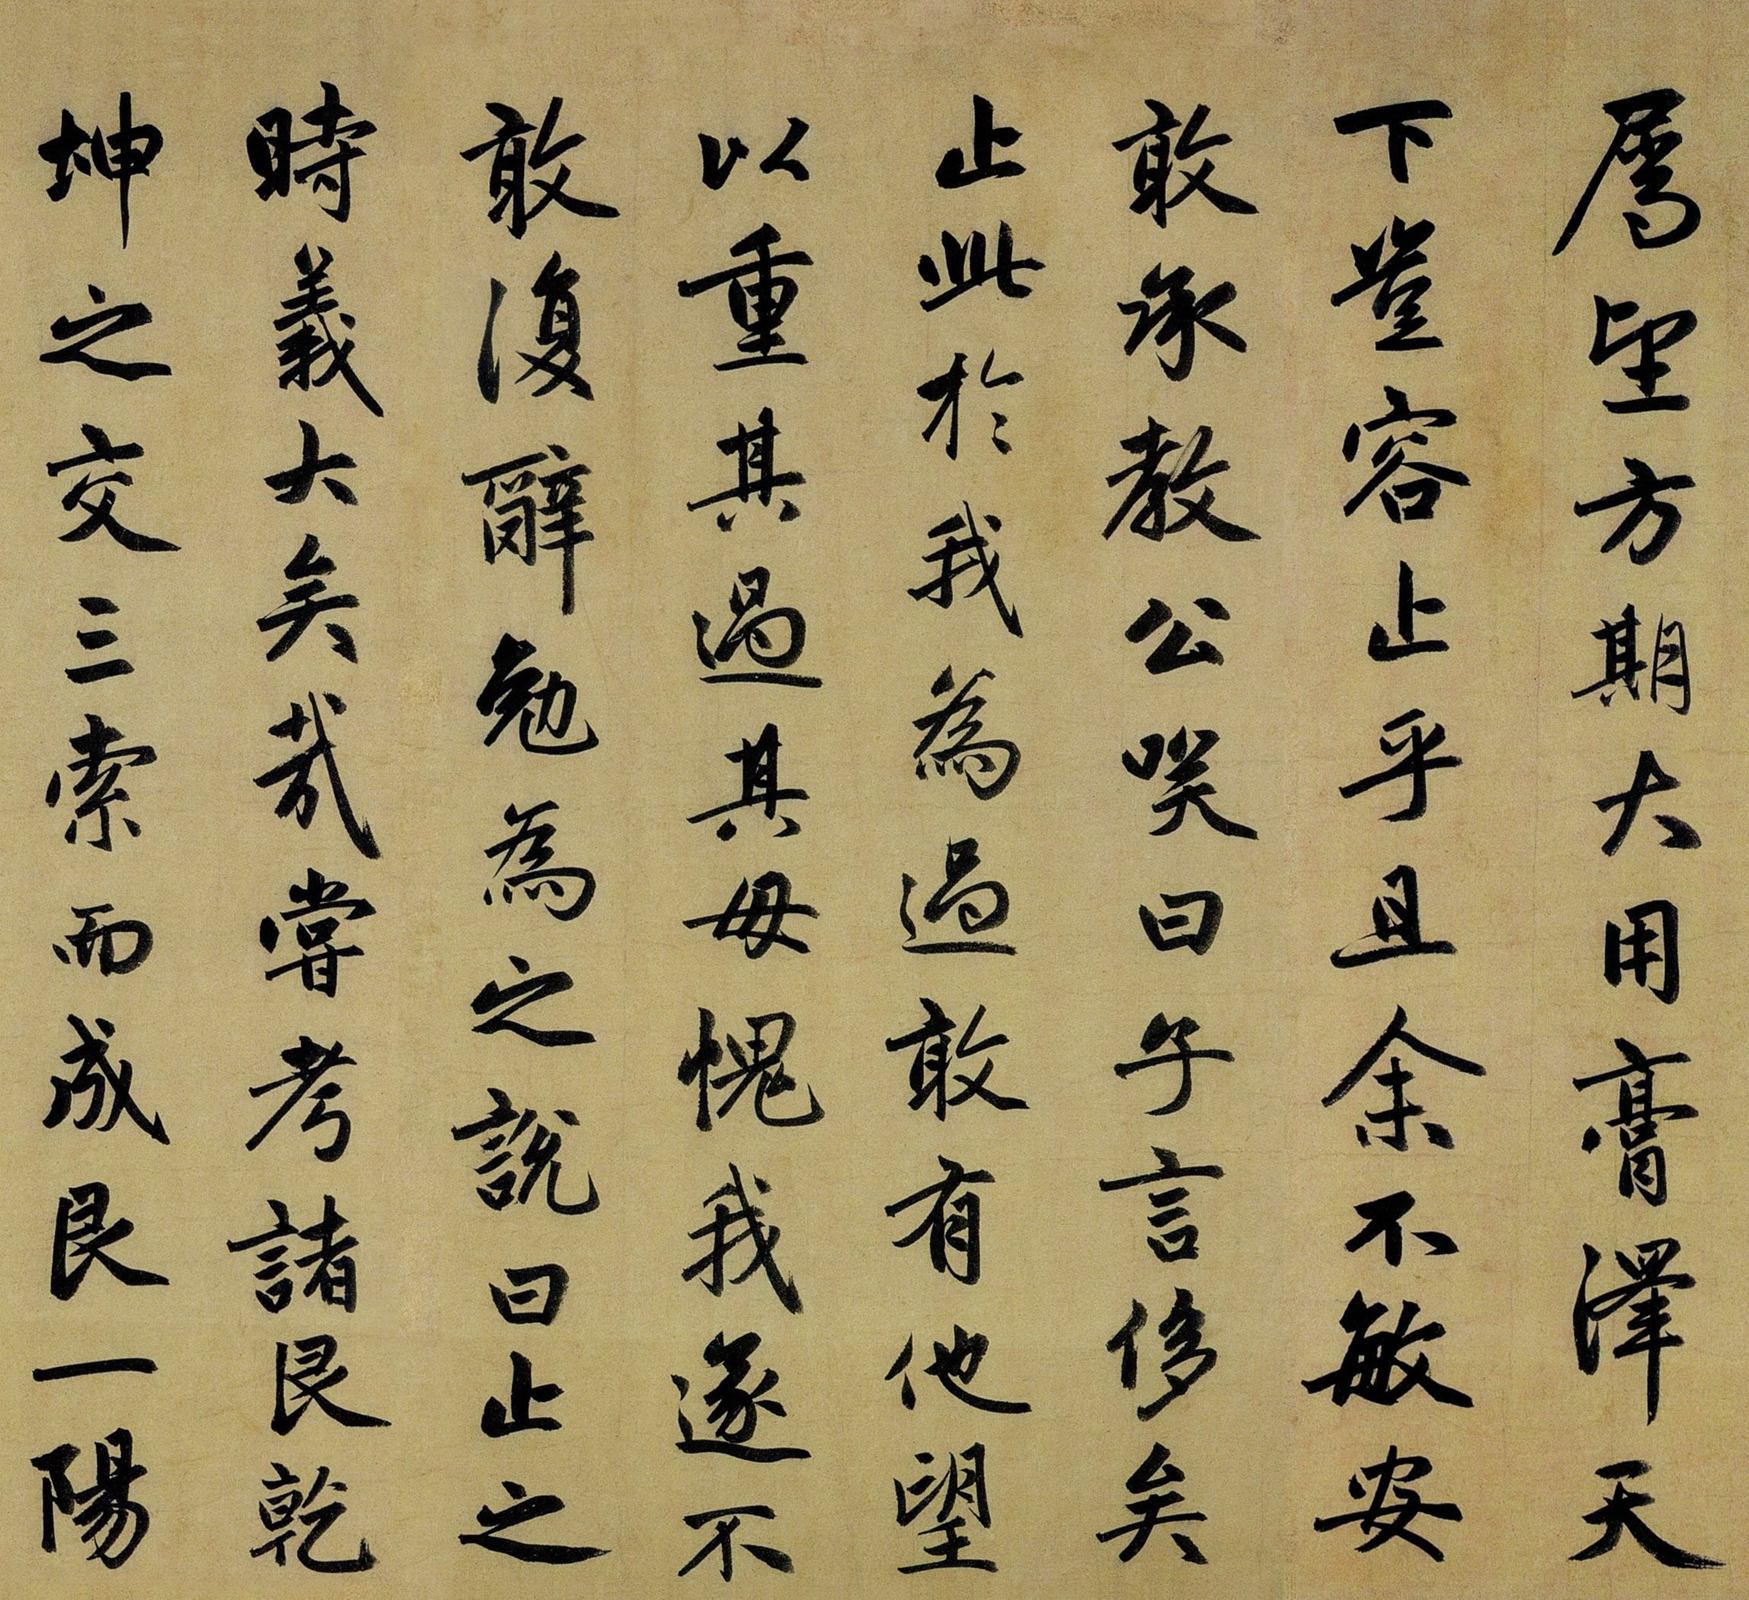 屬望方期大用膏澤天
下豈容止乎且余不敏安
敢承教公咲曰子言侈矣
止此於我為過敢有他望
以重其過其毋愧我遂不
敢復辭勉為之說曰止之
時義大矣哉嘗考諸艮乾
坤之交三索而成艮一陽